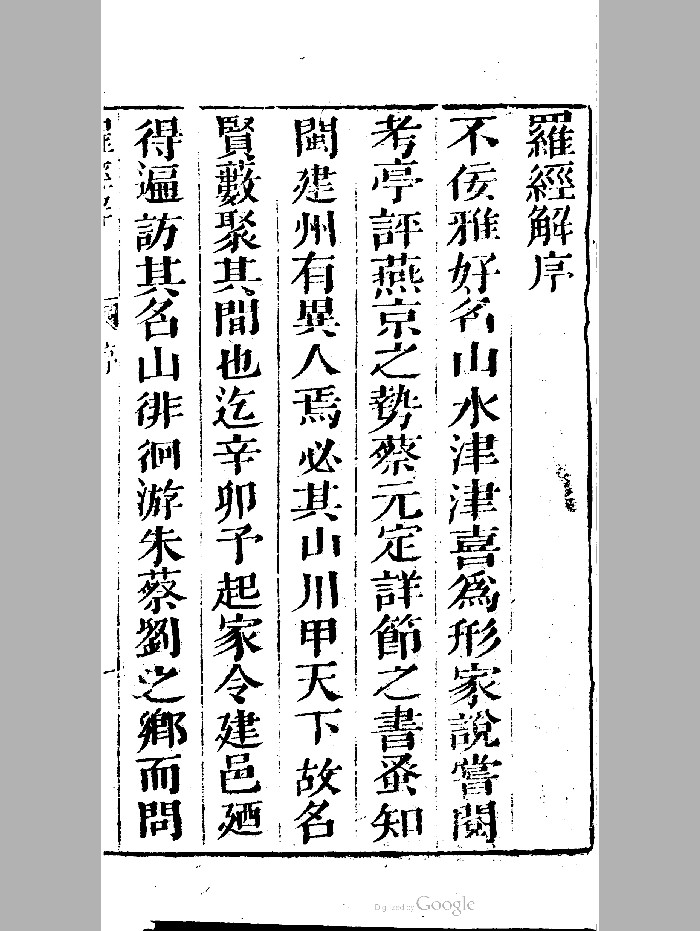 羅經解序
不佞雅好名山水津津喜爲形家說嘗閱
考亭評燕京之勢蔡元定詳節之書蚤知
閩建州有異人焉必其山川甲天下故名
賢藪聚其間也迄辛卯予起家令建邑廼
得遍訪其名山徘徊游朱蔡劉之鄉而問
Digitized by Google